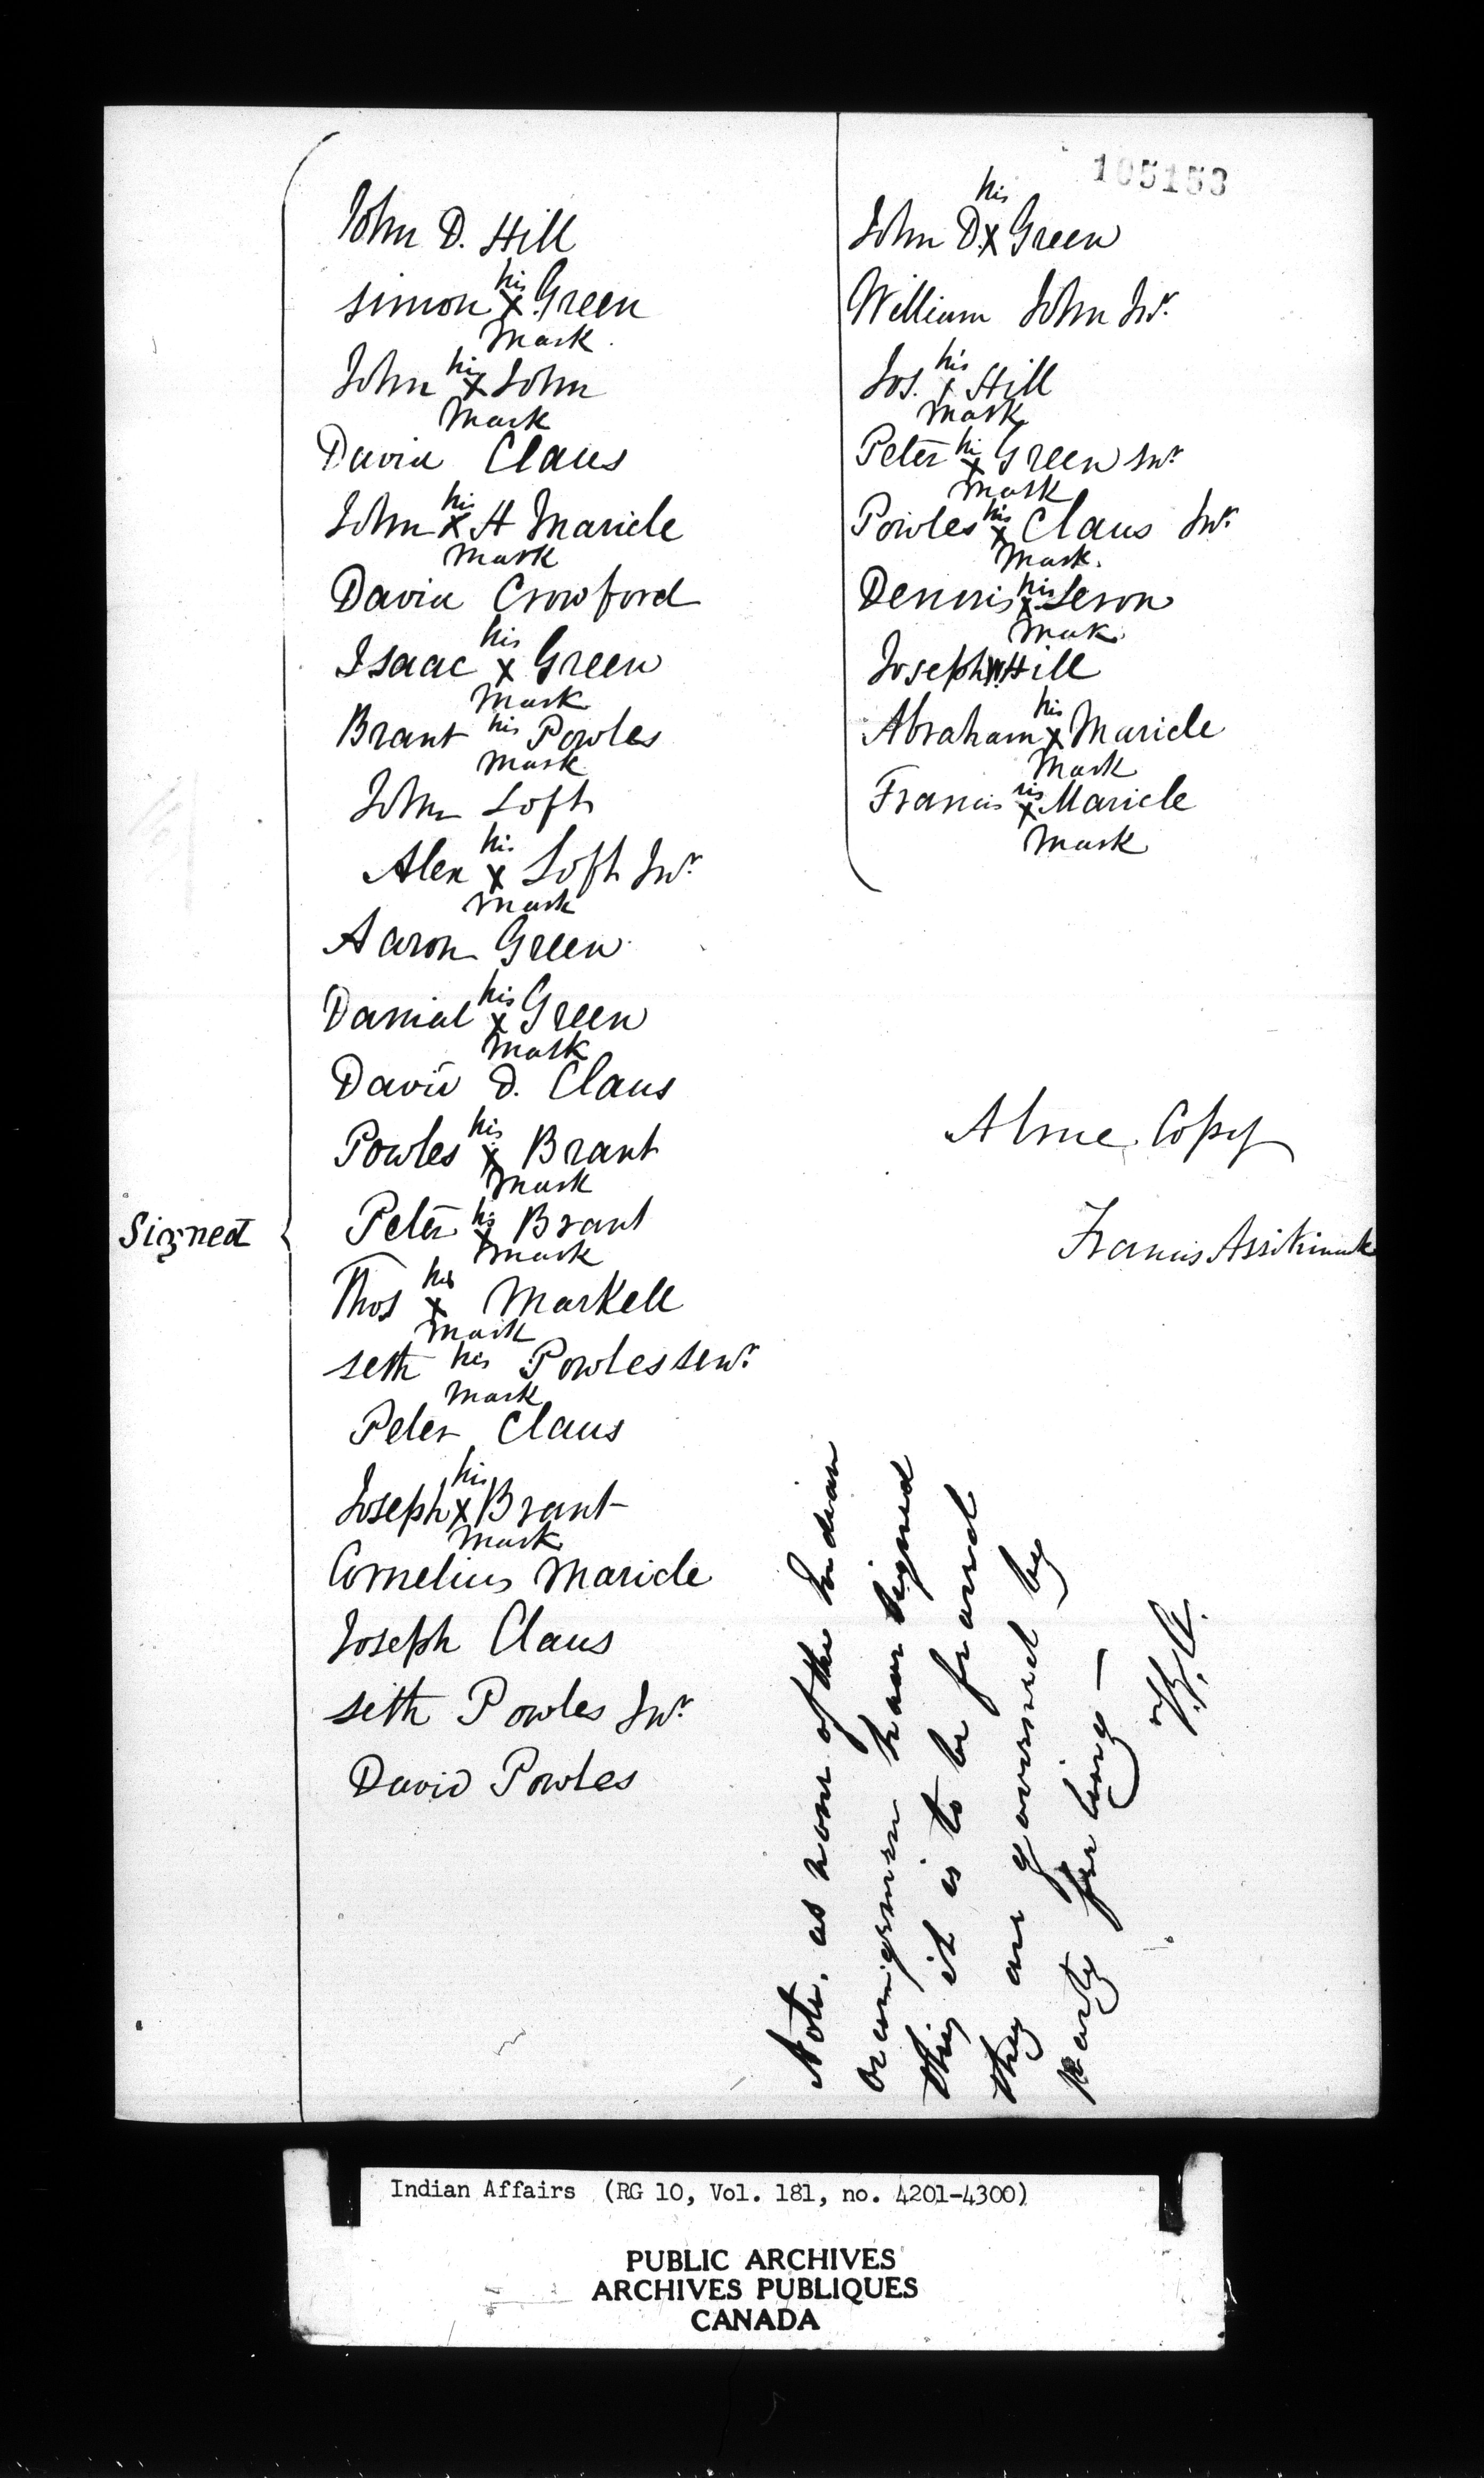 105153
Signed
John D. Hill
his
Simon X Green
Mark
his
John X John
Mark
David Claus
his
John X H Maricle
Mark
David Crowford
his
Isaac X Green
Mark
Brant his Powles
Mark
John Loft
his
Alex X Loft Jnr.
Mark
Aaron Green
his
Danial X Green
Mark
David D. Claus
his
Powles X Brant
Mark
his
Peter X Brant
Mark
his
Thos X Markell
Mark
Seth his Powles Senr.
Mark
Peter Claus
his
Joseph X Brant
Mark
Cornelius Maricle
Joseph Claus
Seth Powles Jnr.
David Powles
his
John D. X Green
William John Jnr.
his
Jos. X Hill
Mark
his
Peter X Green Jnr.
Mark
his
Powles X Claus Jnr.
Mark.
his
Dennis X Leron
Mark
Joseph W. Hill
his
Abraham X Maricle
Mark
his
Francis X Maricle
Mark
A true Copy
Francis Assikinack
Note. as none of the Indian
have signed
this it is to be feared
they are governed by
party feeling —
Indian Affairs (RG 10, Vol. 181, no. 4201-4300)
PUBLIC ARCHIVES
ARCHIVES PUBLIQUES
CANADA